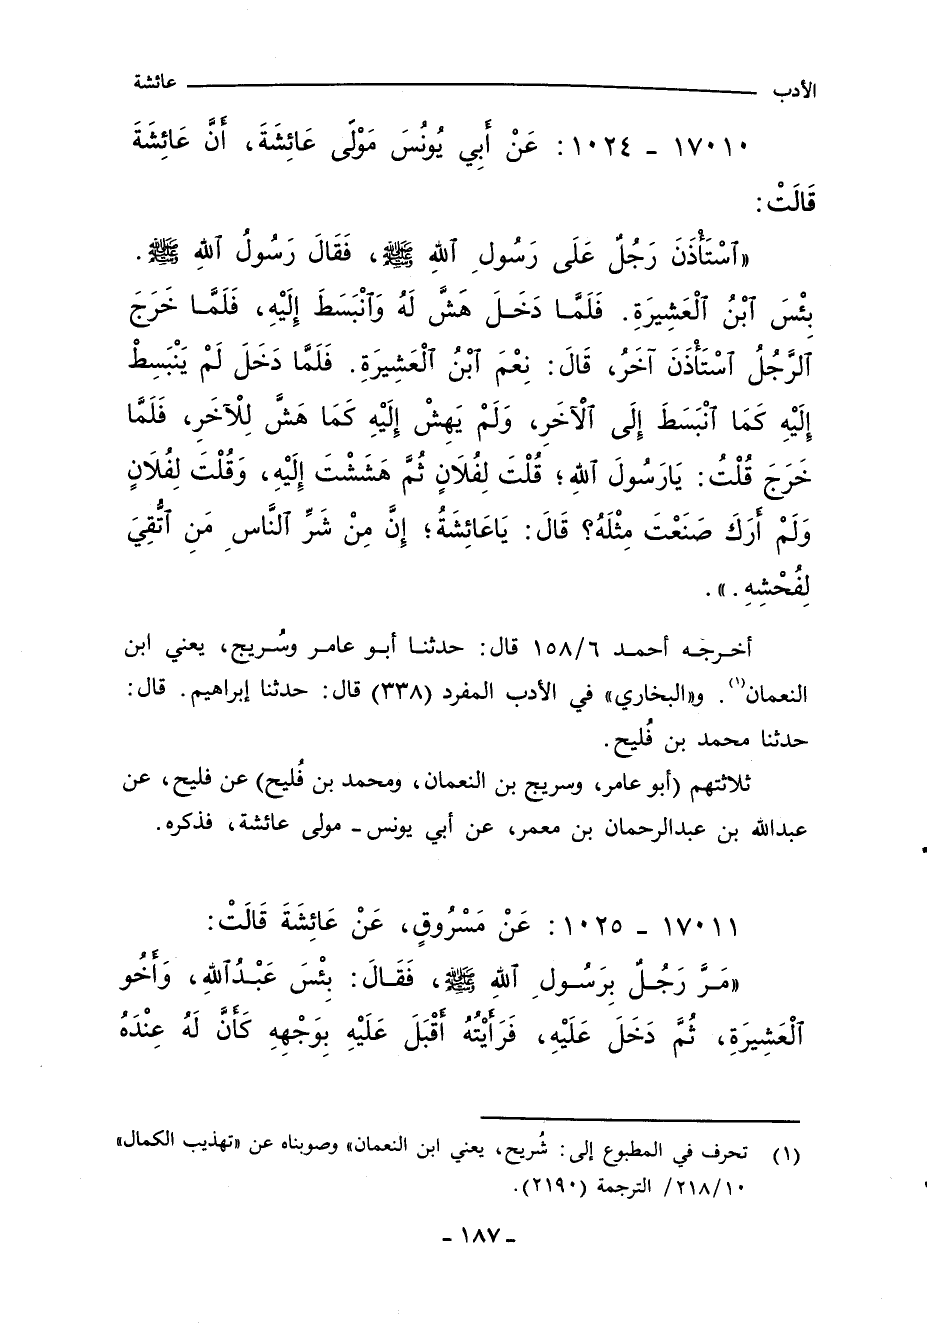 الأدب ــــــــ عائشة
١٧٠١٠ - ١٠٢٤: عَنْ أَبِي يُونُسَ مَوْلَى عَائِشَةَ، أَنَّ عَائِشَةَ
قَالَتْ:
«ٱسْتَأْذَنَ رَجُلٌ عَلَى رَسُولِ ٱللهِ ﷺ، فَقَالَ رَسُولُ ٱللهِ ﷺ.
بِئْسَ ٱبْنُ ٱلْعَشِيرَةِ. فَلَمَّا دَخَلَ هَشَّ لَهُ وَٱنْبَسَطَ إِلَيْهِ، فَلَمَّا خَرَجَ
ٱلرَّجُلُ ٱسْتَأْذَنَ آخَرُ، قَالَ: نِعْمَ ٱبْنُ ٱلْعَشِيرَةِ. فَلَمَّا دَخَلَ لَمْ يَنْبَسِطْ
إِلَيْهِ كَمَا ٱنْبَسَطَ إِلَى ٱلْآخَرِ، وَلَمْ يَهِشْ إِلَيْهِ كَمَا هَشَّ لِلْآخَرِ، فَلَمَّا
خَرَجَ قُلْتُ: يَارَسُولَ ٱللهِ؛ قُلْتَ لِفُلَانٍ ثُمَّ هَشَشْتَ إِلَيْهِ، وَقُلْتَ لِفُلَانٍ
وَلَمْ أَرَكَ صَنَعْتَ مِثْلَهُ؟ قَالَ: يَاعَائِشَةُ؛ إِنَّ مِنْ شَرِّ ٱلنَّاسِ مَنِ ٱتُّقِيَ
لِفُحْشِهِ.».
أخرجه أحمد ١٥٨/٦ قال: حدثنا أبو عامر وسُريج، يعني ابن
النعمان(١). و«البخاري» في الأدب المفرد (٣٣٨) قال: حدثنا إبراهيم. قال:
حدثنا محمد بن فُليح.
ثلاثتهم (أبو عامر، وسريج بن النعمان، ومحمد بن فُليح) عن فليح، عن
عبدالله بن عبدالرحمان بن معمر، عن أبي يونس- مولى عائشة، فذكره.
١٧٠١١ - ١٠٢٥: عَنْ مَسْرُوقٍ، عَنْ عَائِشَةَ قَالَتْ:
«مَرَّ رَجُلٌ بِرَسُولِ ٱللهِ ﷺ، فَقَالَ: بِئْسَ عَبْدُٱللهِ، وَأَخُو
ٱلْعَشِيرَةِ، ثُمَّ دَخَلَ عَلَيْهِ، فَرَأَيْتُهُ أَقْبَلَ عَلَيْهِ بِوَجْهِهِ كَأَنَّ لَهُ عِنْدَهُ
(١) تحرف في المطبوع إلى: شُريح، يعني ابن النعمان» وصوبناه عن «تهذيب الكمال»
٢١٨/١٠/ الترجمة (٢١٩٠).
- ١٨٧ -